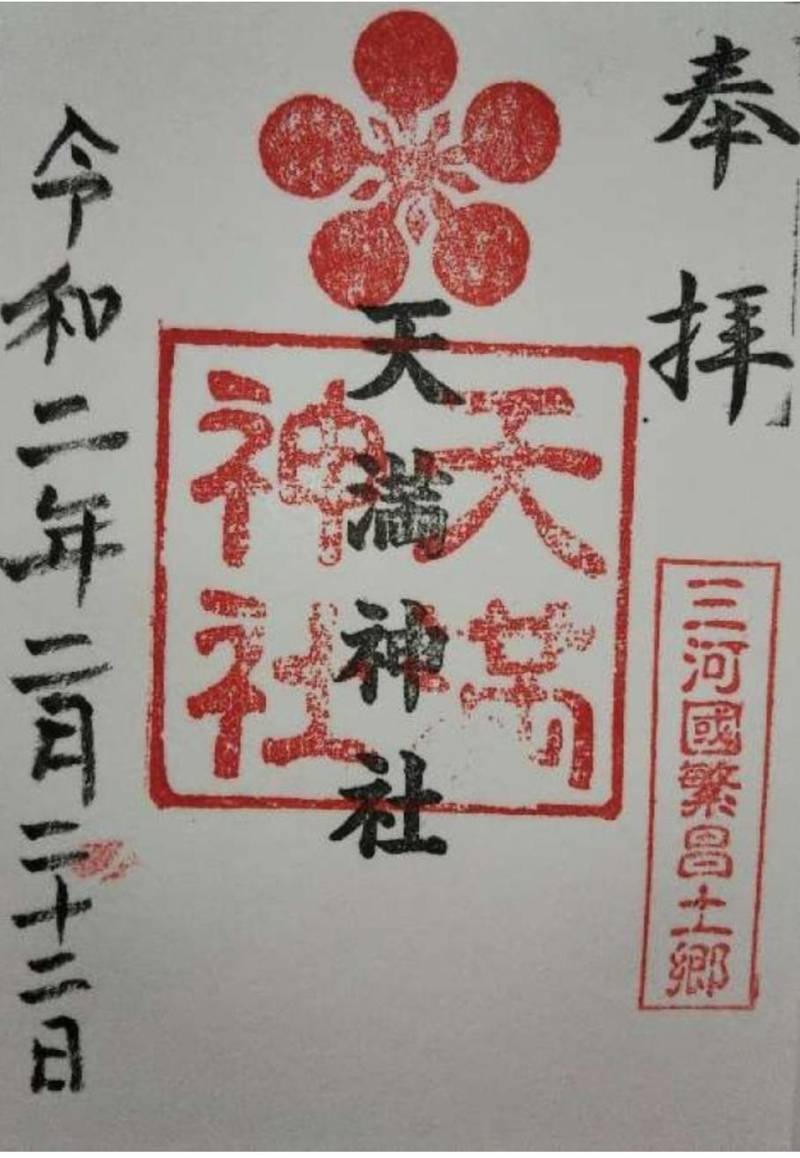 奉拝
三河國繁昌土郷
天満神社
天満
神社
令和二年二月二十二日